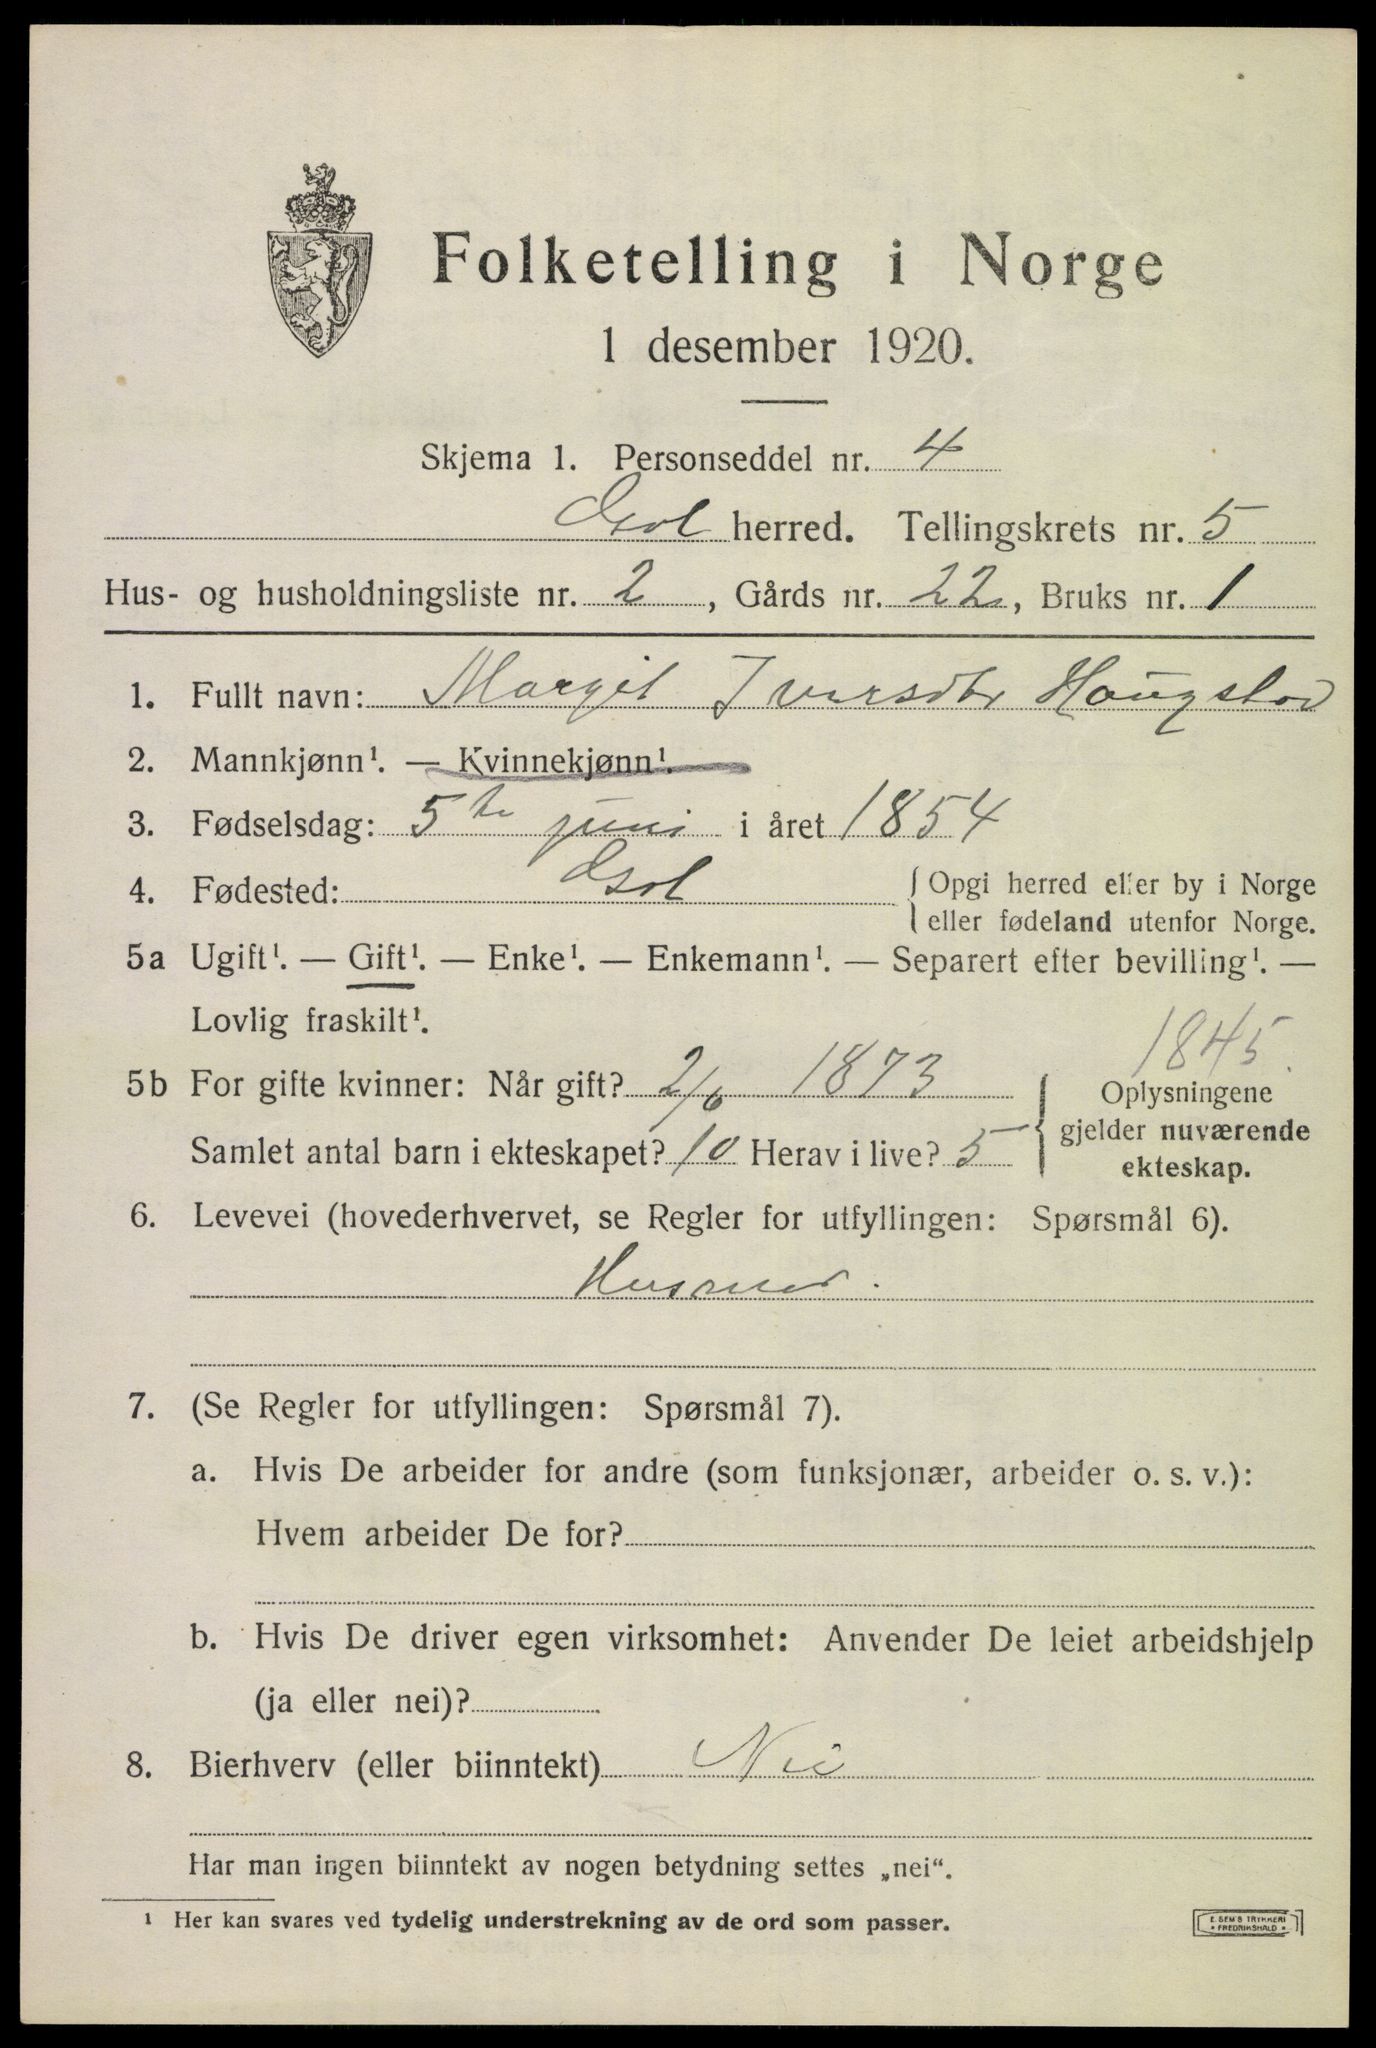 Folketelling i Norge
1 desember 1920.
Skjema 1. Personseddel nr. 4
Gol herred. Tellingskrets nr. 5
Hus- og husholdningsliste nr. 2, Gårds nr. 22, Bruks nr. 1
1. Fullt navn: Margit Iversdtr Haugstad
2. Mannkjønn¹. — Kvinnekjønn¹.
3. Fødselsdag: 5te juni i året 1854
4. Fødested: Gol { Opgi herred eller by i Norge
eller fødeland utenfor Norge.
5a Ugift¹. — Gift¹. — Enke¹. — Enkemann¹. — Separert efter bevilling¹. —
Lovlig fraskilt¹.
1845.
5b For gifte kvinner: Når gift? 2/6 1873 { Oplysningene
gjelder nuværende
Samlet antal barn i ekteskapet? 10 Herav i live? 5
ekteskap.
6. Levevei (hovederhvervet, se Regler for utfyllingen: Spørsmål 6).
Husmor.
7. (Se Regler for utfyllingen: Spørsmål 7).
a. Hvis De arbeider for andre (som funksjonær, arbeider o. s. v.):
Hvem arbeider De for?
b. Hvis De driver egen virksomhet: Anvender De leiet arbeidshjelp
(ja eller nei)?
8. Bierhverv (eller biinntekt) Nei
Har man ingen biinntekt av nogen betydning settes „nei“.
¹ Her kan svares ved tydelig understrekning av de ord som passer.
E. SEM'S TRYKKERI
* FREDRIKSHALD *